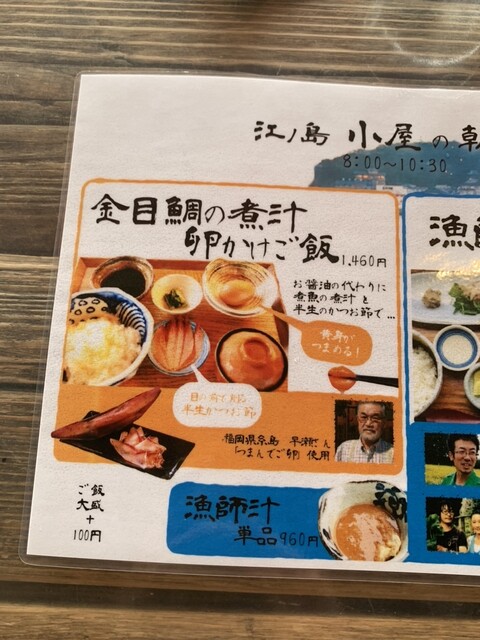 江ノ島 小屋の朝
8:00〜10:30
金目鯛の煮汁
卵かけご飯 1,460円
お醤油の代わりに
煮魚の煮汁と
半生のかつお節で...
黄身が
つまめる!
目の前で削る
半生かつお節
福岡県糸島 早瀬さん
「つまんでご卵」使用
ご飯
大盛
+
100円
漁師汁
単品 960円
漁師